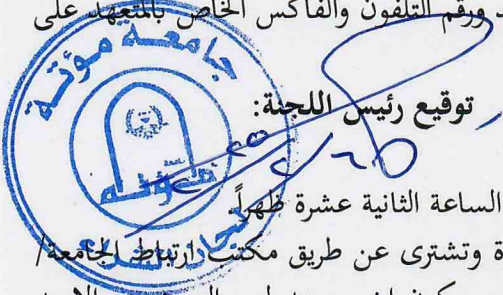 ورقم التلفون والفاكس الخاص بالمتعهد على
جامعة مؤتة
توقيع رئيس اللجنة:
مؤتة
الساعة الثانية عشرة ظهراً
لجان الشراء
ة وتشترى عن طريق مكتب ارتباط الجامعة/